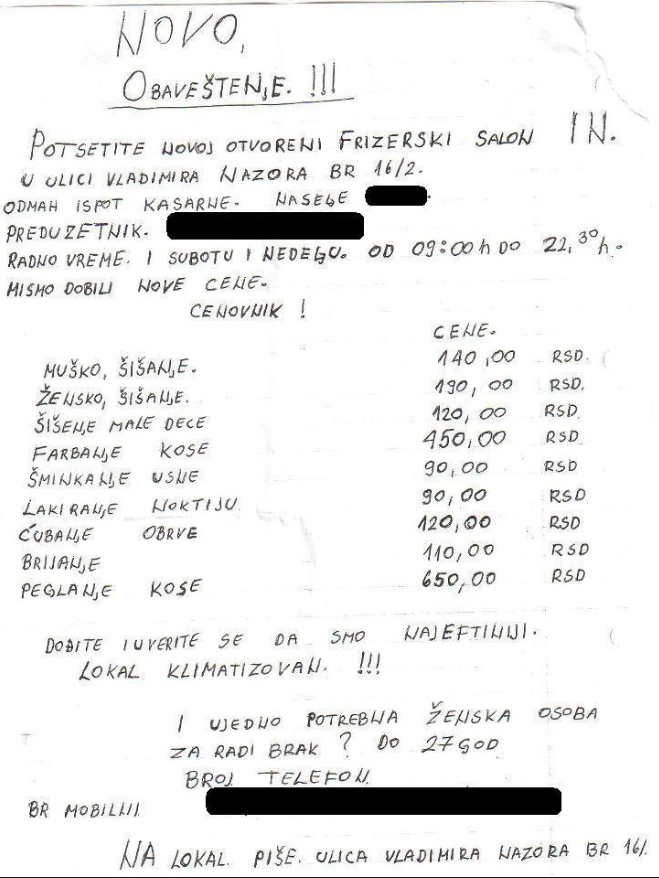 NOVO,
OBAVEŠTENJE. !!!
POTSETITE NOVOJ OTVORENI FRIZERSKI SALON IN.
U ULICI VLADIMIRA NAZORA BR 16/2.
ODMAH ISPOT KASARNE. NASELJE
PREDUZETNIK.
RADNO VREME. I SUBOTU I NEDELJU. OD 09:00h DO 22,30h.
MISMO DOBILI NOVE CENE.
CENOVNIK !
CENE.
MUŠKO, ŠIŠANJE. 140,00 RSD.
ŽENSKO, ŠIŠANJE. 130,00 RSD.
ŠIŠENJE MALE DECE 120,00 RSD.
FARBANJE KOSE 450,00 RSD
ŠMINKANJE USNE 90,00 RSD
LAKIRANJE NOKTIJU 90,00 RSD
ČUBANJE OBRVE 120,00 RSD
BRIJANJE 110,00 RSD
PEGLANJE KOSE 650,00 RSD
DOĐITE I UVERITE SE DA SMO NAJEFTINIJI.
LOKAL KLIMATIZOVAN. !!!
I UJEDNO POTREBNA ŽENSKA OSOBA
ZA RADI BRAK ? DO 27 GOD
BROJ TELEFON
BR MOBILNI
NA LOKAL. PIŠE. ULICA VLADIMIRA NAZORA BR 16/.